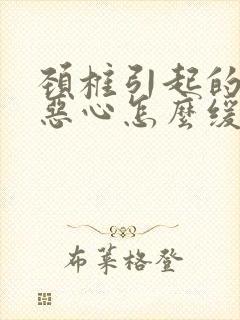 颈椎引起的
惡心怎麼缓
布莱格登